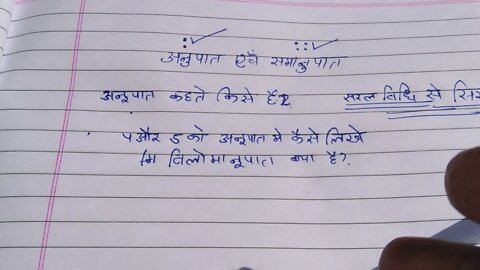 : ::
अनुपात एवं समानुपात
अनुपात कहते किसे हैं? सरल विधि से
प और 5 को अनुपात में कैसे लिखे
विलोमानुपाता क्या है?